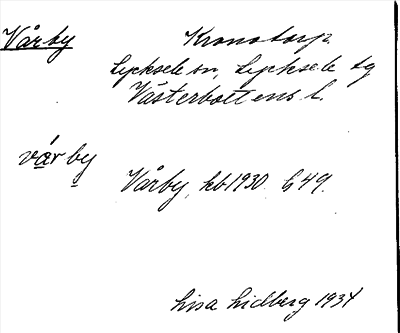 Vårby
Kronotorp
Lycksele sn, Lycksele tg
Västerbottens l.
várby
Vårby, kb 1930 G 49.
Lisa Lidberg 1934